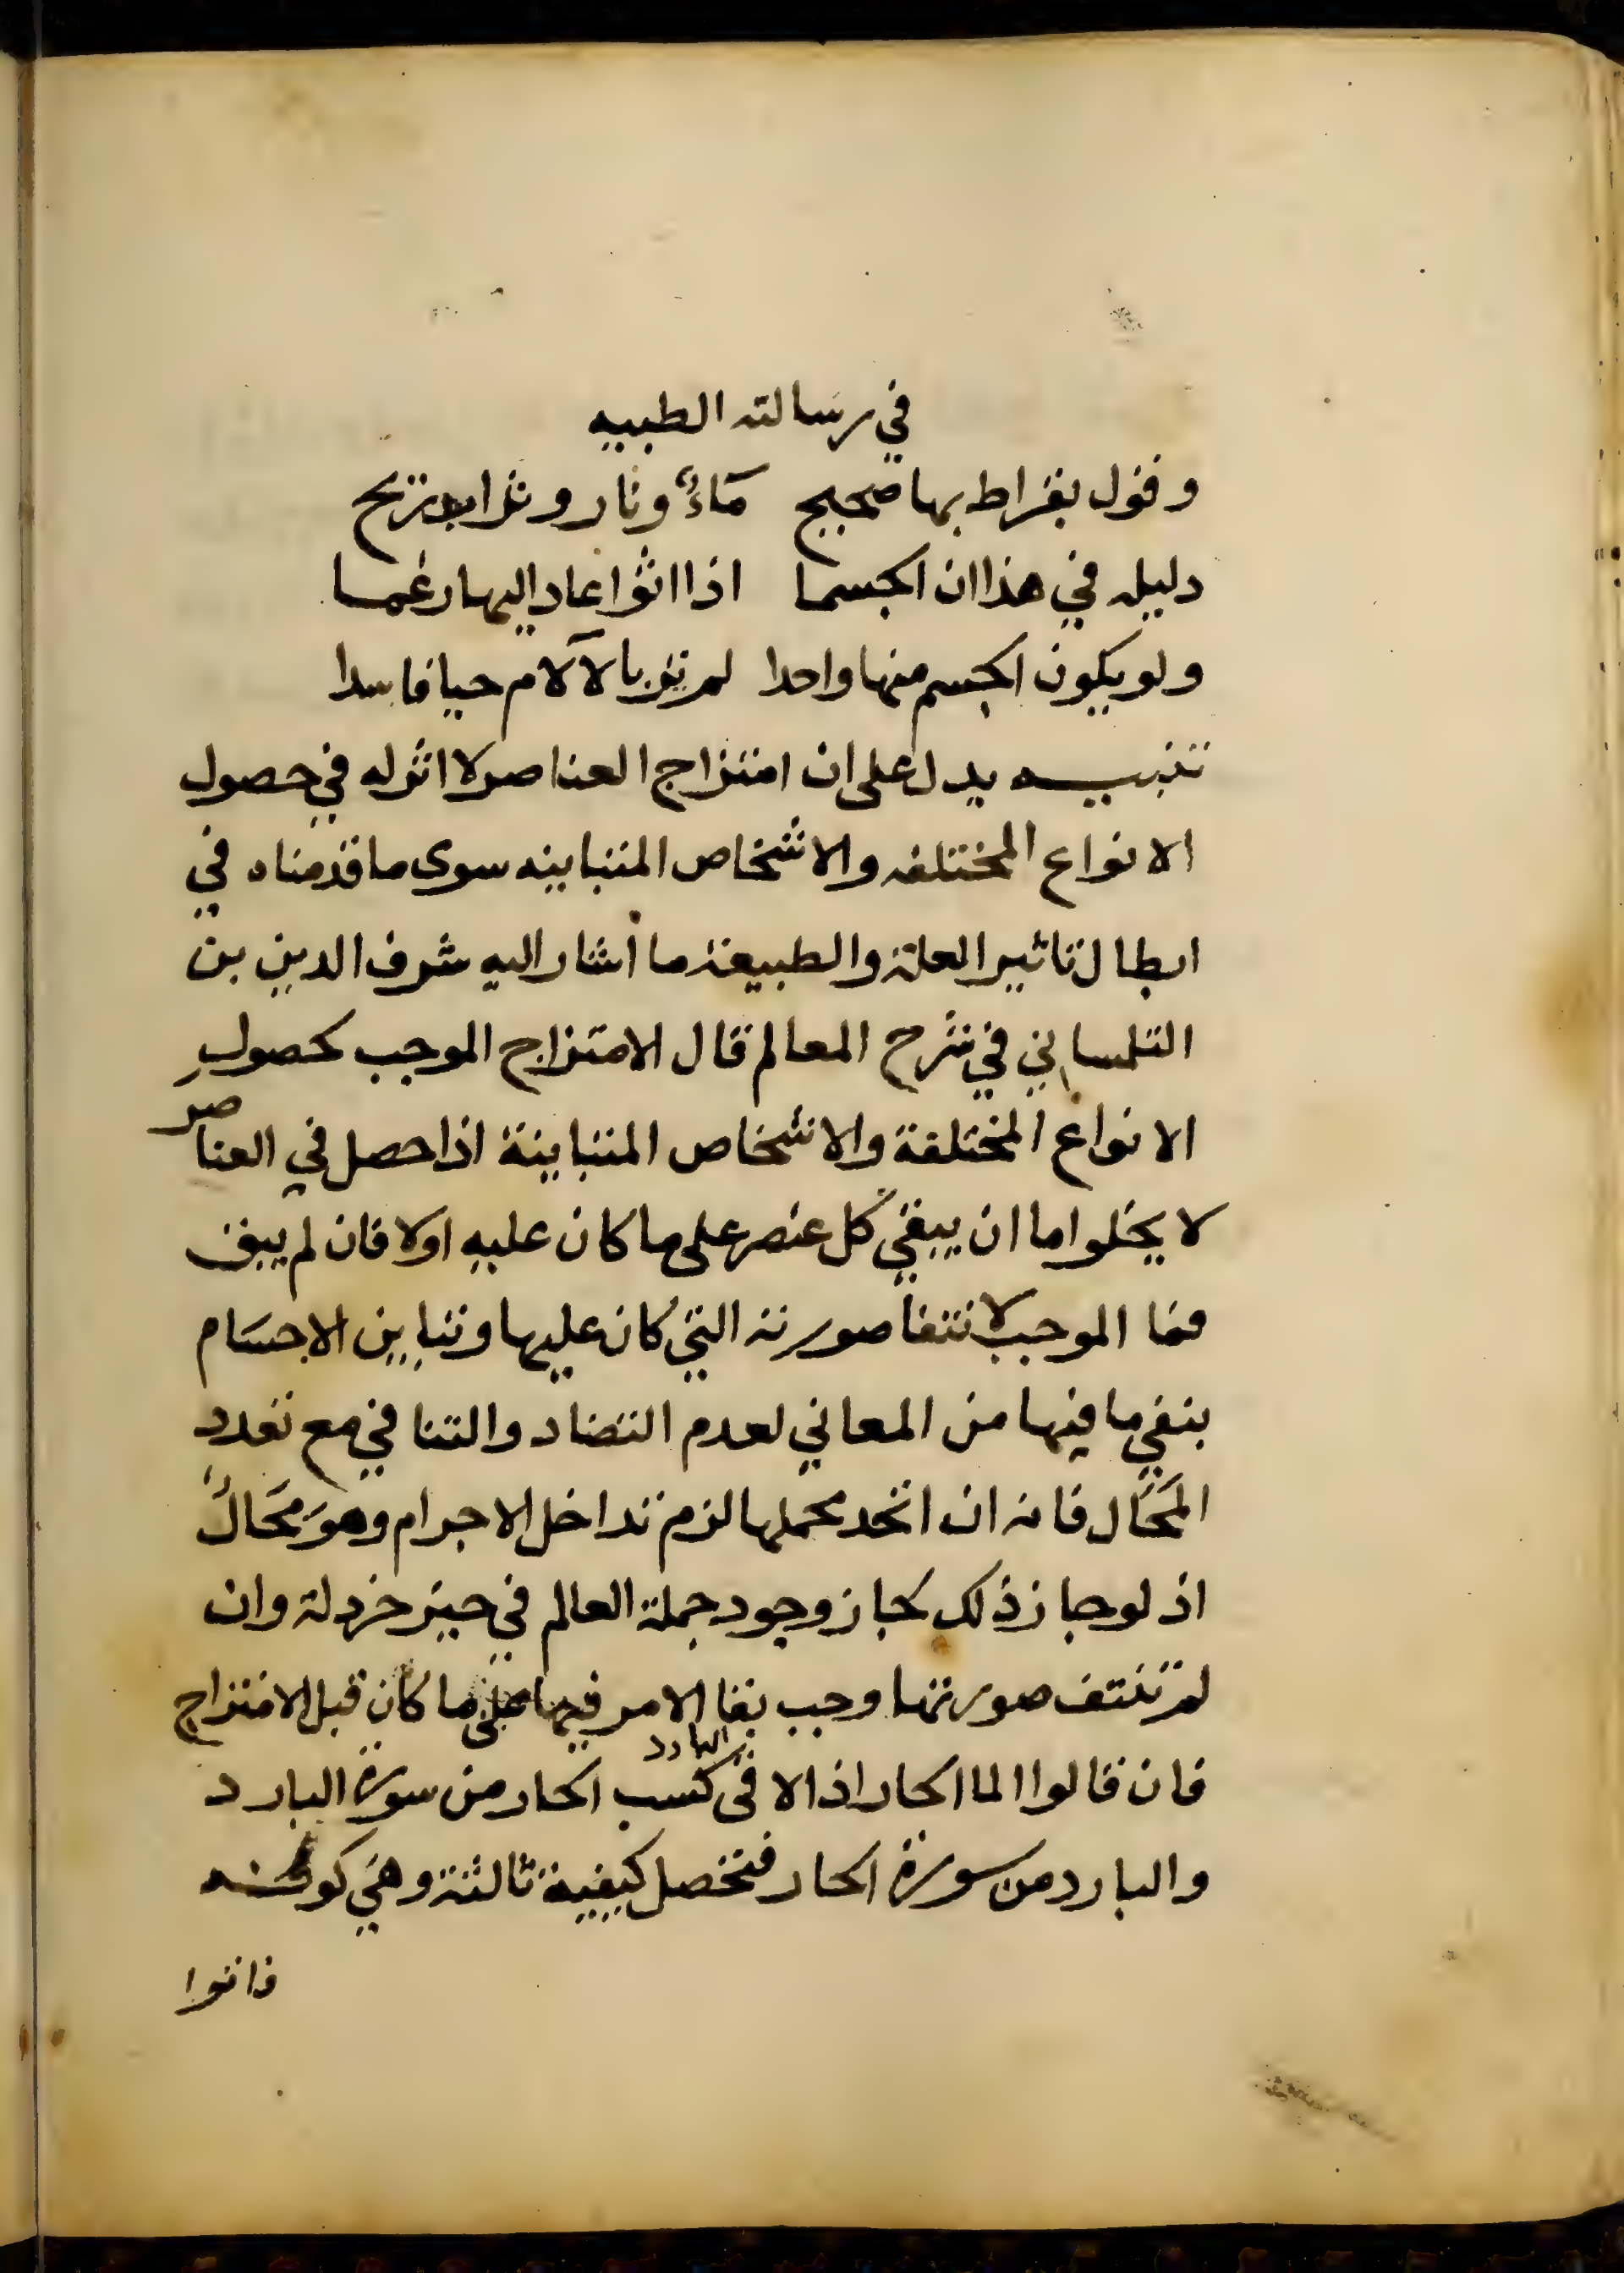 في رسالته الطبيه
وقول بقراط بها صحيح ماءٌ ونار وتراب ريح
دليله في هذا ان الجسما اذا اثوا عاد اليها رغما
ولو يكون الجسم منها واحدا لم نر بالآلام حيا فاسدا
تنبيه يدل على ان امتزاج العناصر لا اثر له في حصول
الانواع المختلفه والاشخاص المتباينه سوى ما قدمناه في
ابطال تاثير العلة والطبيعة ما أشار اليه شرف الدين بن
التلمساني في شرح المعالم قال الامتزاج الموجب لحصول
الانواع المختلفة والاشخاص المتباينة اذا حصل في العناصر
لا يخلوا اما ان يبقي كل عنصر على ما كان عليه اولا فان لم يبق
فما الموجب لانتفا صورته التي كان عليها وتباين الاجسام
بنفي ما فيها من المعاني لعدم التضاد والتنافي مع تعدد
المَحَال فانه ان اتحد محلها لزم تداخل الاجرام وهو مَحَالٌ
اذ لو جاز ذلك لجاز وجود جملة العالم في حيز خردلة وان
لم تنتف صورتها وجب بقا الامر فيها على ما كان قبل الامتزاج
فان قالوا الما الحار اذا لاقى البارد كسب الحار من سورة البارد
والبارد من سورة الحار فتحصل كيفية ثالثة وهي كونه
فاتوا